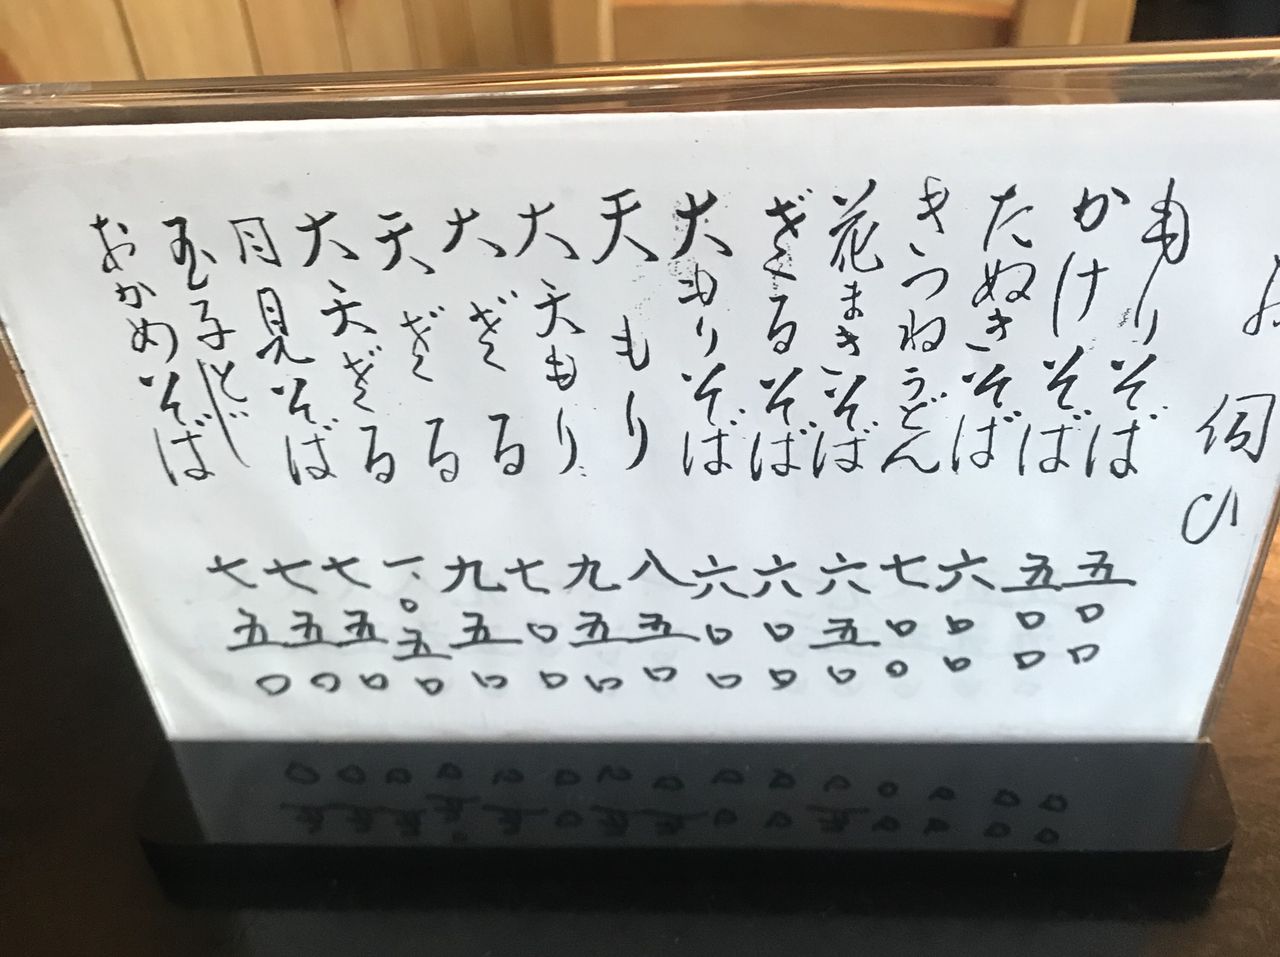 お伺い
もりそば 五〇〇
かけそば 五〇〇
たぬきそば 六〇〇
きつねうどん 七〇〇
花まきそば 六五〇
ざるそば 六〇〇
大もりそば 六〇〇
天もり 八五〇
大天もり 九五〇
大ざる 七〇〇
天ざる 九五〇
大天ざる 一、〇五〇
月見そば 七五〇
玉子とじ 七五〇
おかめそば 七五〇